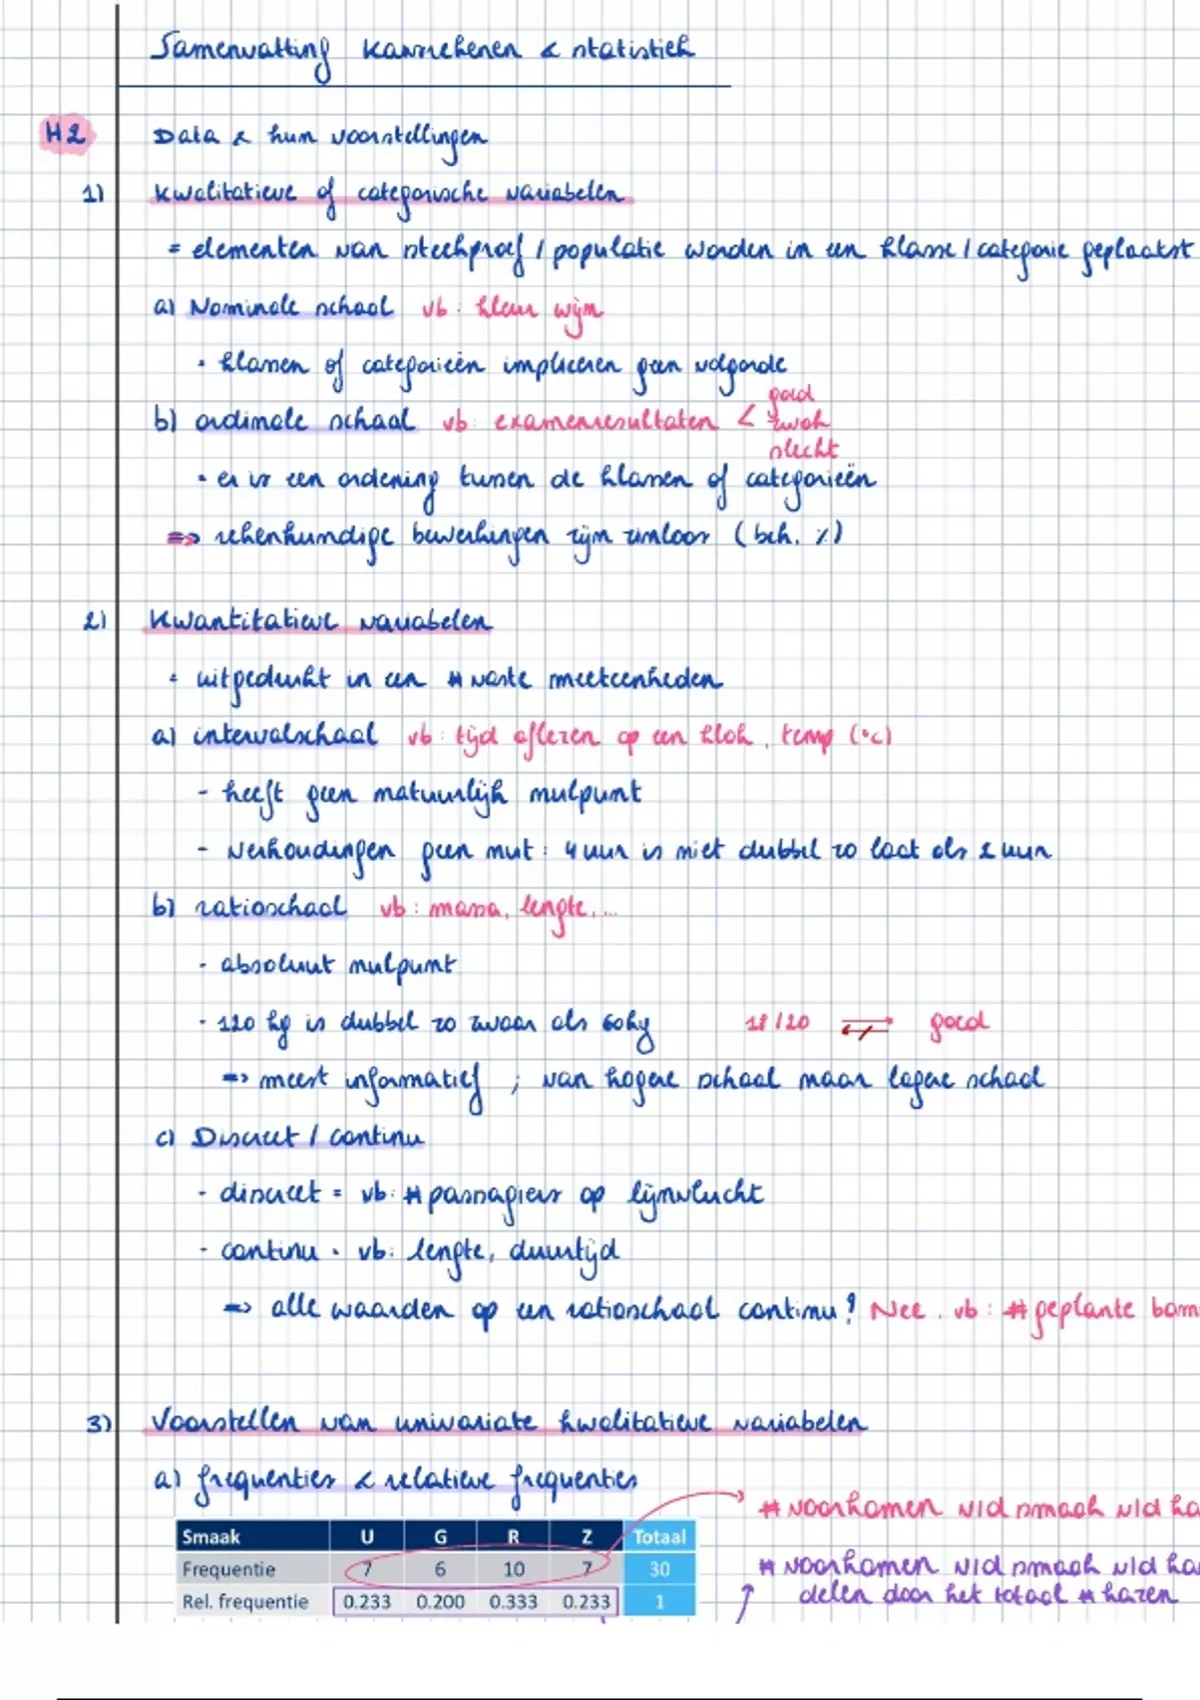 Samenvatting kansrekenen & statistiek
H2 Data & hun voorstellingen
1) Kwalitatieve of categorische variabelen
= elementen van steekproef / populatie worden in een klasse / categorie geplaatst
a) Nominale schaal vb: kleur wijn
• klassen of categorieën impliceren geen volgorde
b) ordinale schaal vb: examenresultaten < goed
zwak
slecht
• er is een ordening tussen de klassen of categorieën
=> rekenkundige bewerkingen zijn zinloos (beh. %)
2) Kwantitatieve variabelen
= uitgedrukt in een # vaste meeteenheden
a) intervalschaal vb: tijd aflezen op een klok, temp (°C)
- heeft geen natuurlijk nulpunt
- Verhoudingen geen nut: 4 uur is niet dubbel zo laat als 2 uur
b) ratioschaal vb: massa, lengte, ...
- absoluut nulpunt
- 120 kg is dubbel zo zwaar als 60kg 18/20 goed
=> meest informatief ; van hogere schaal naar lagere schaal
c) Discreet / continu
- discreet = vb: # passagiers op lijnvlucht
- continu = vb: lengte, duurtijd
=> alle waarden op een ratioschaal continu? Nee. vb: # geplante bom
3) Voorstellen van univariate kwalitatieve variabelen
a) frequenties & relatieve frequenties
# voorkomen v/d smaak v/d ha
Smaak U G R Z Totaal
Frequentie 7 6 10 7 30
# voorkomen v/d smaak v/d ha
delen door het totaal # hazen
Rel. frequentie 0.233 0.200 0.333 0.233 1